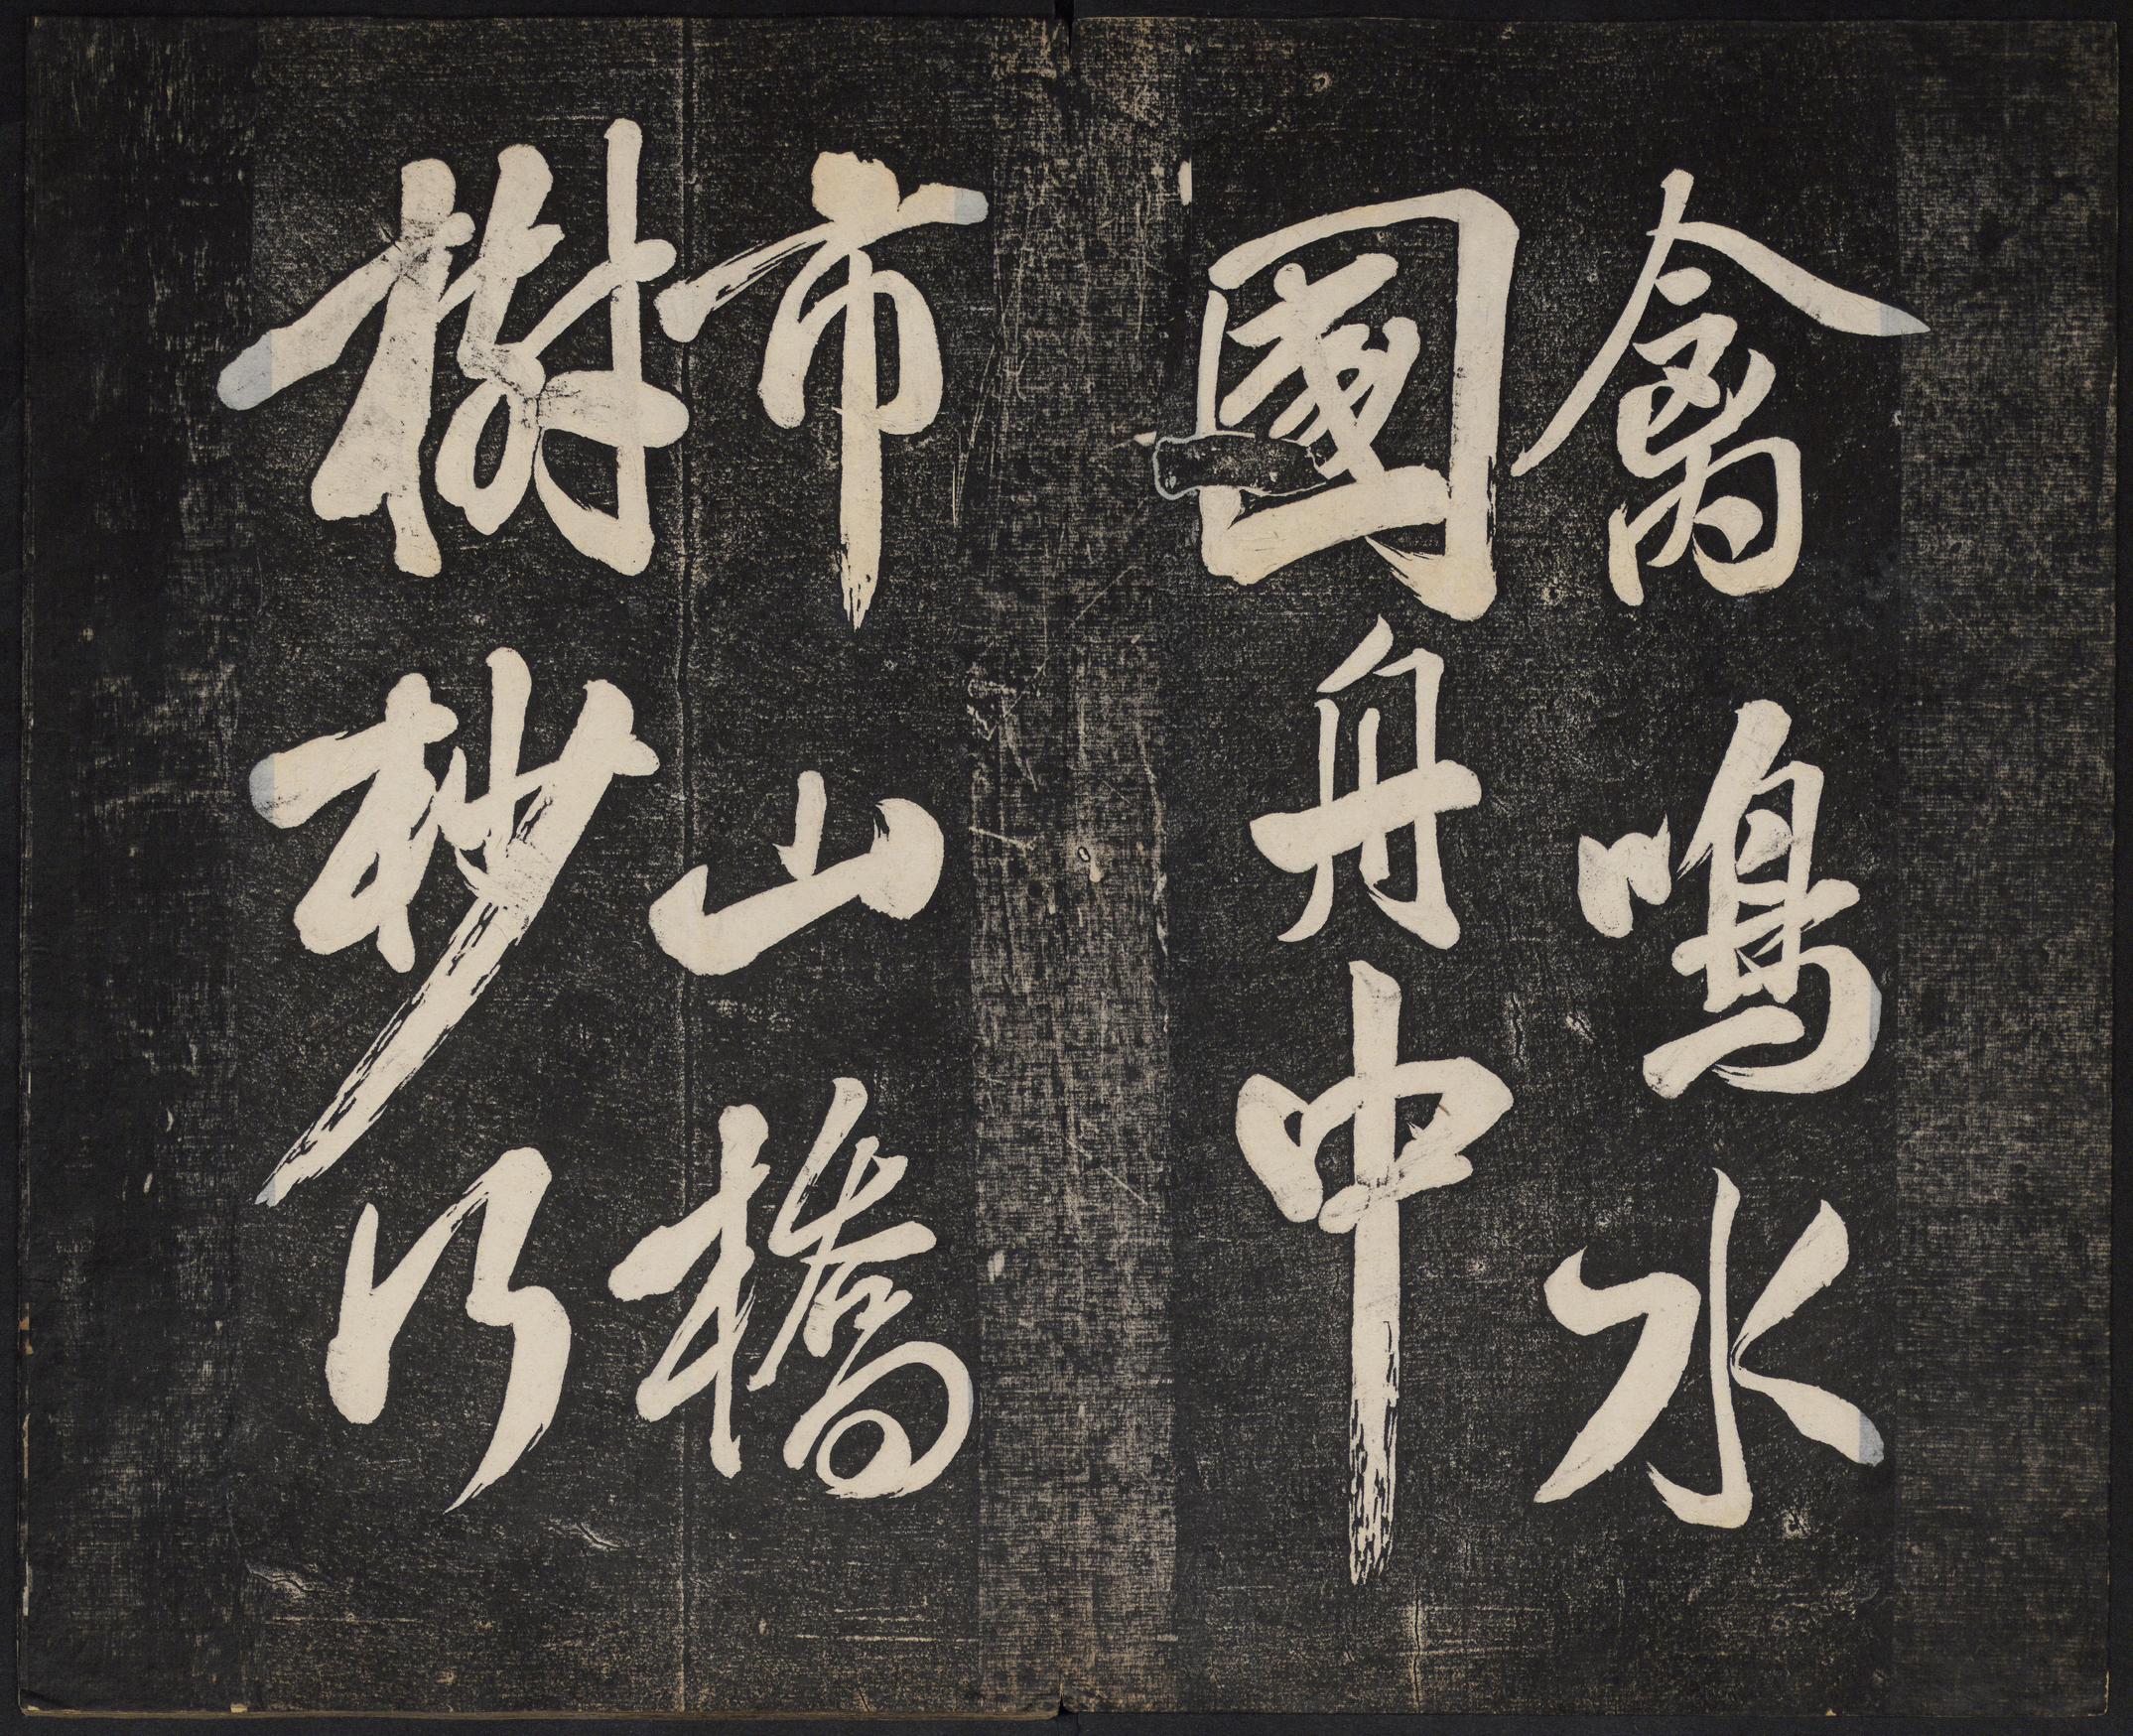 禽鳴水
國舟中
市山橋
樹杪行